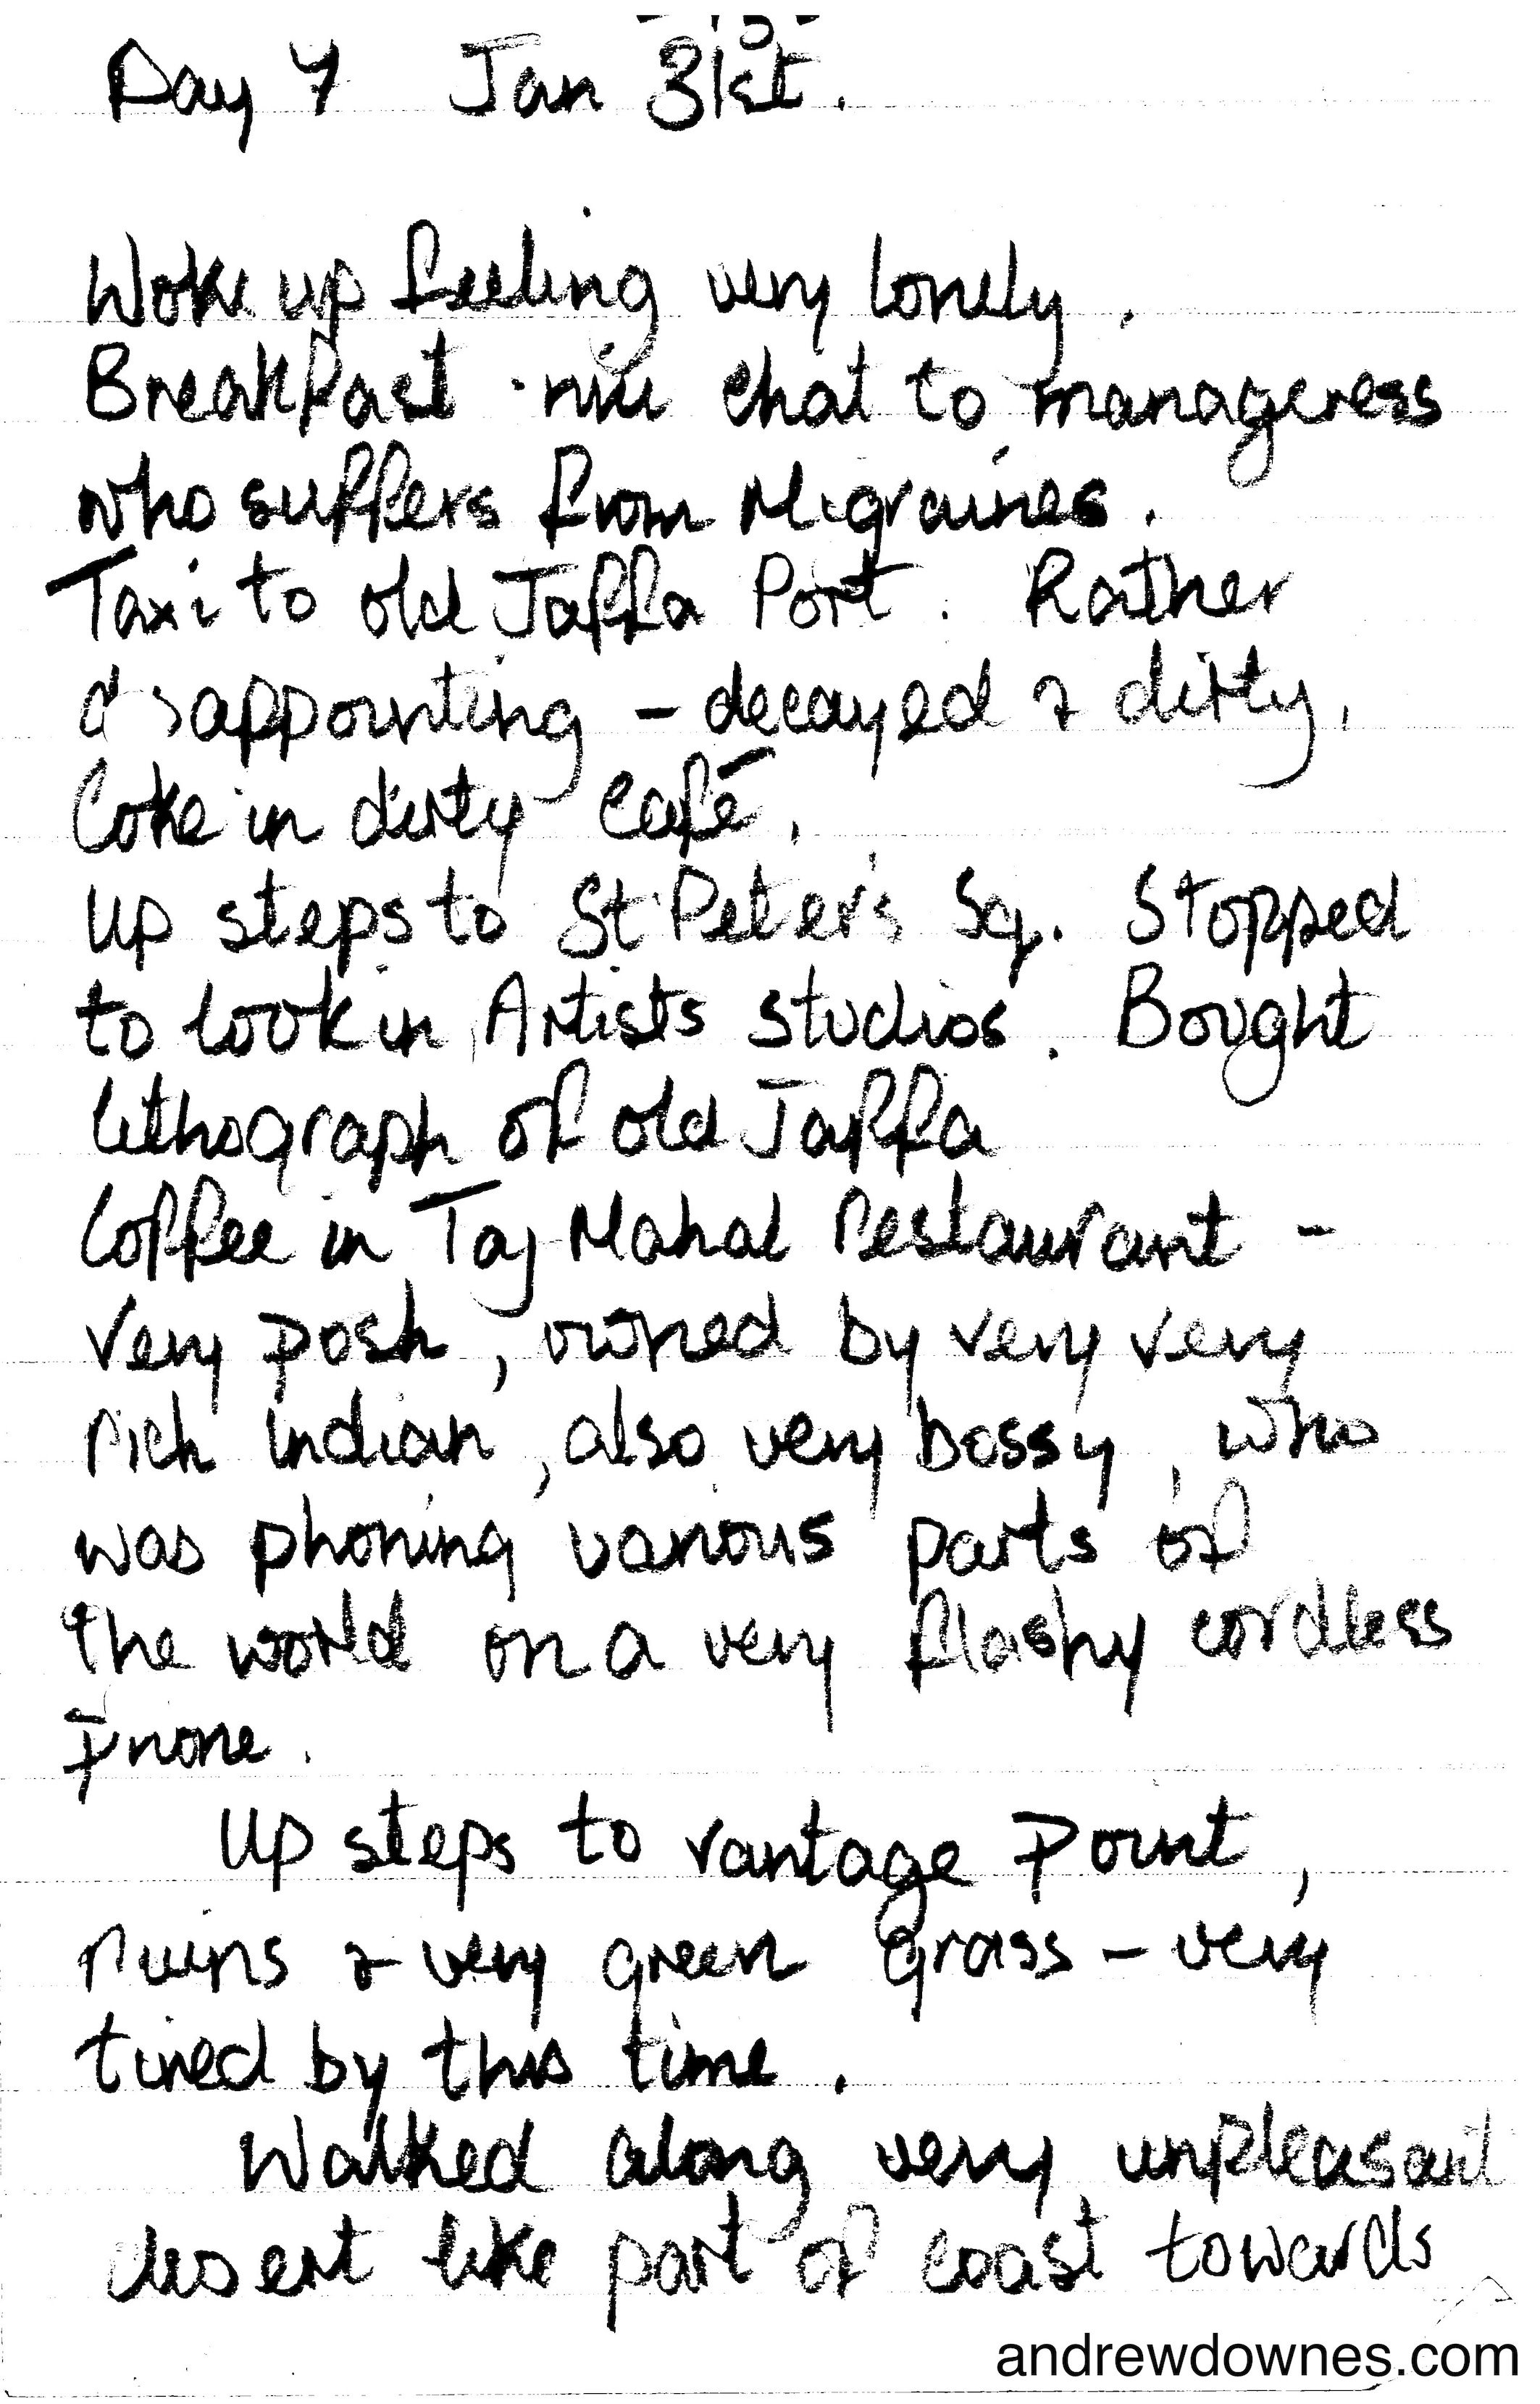 Day 7 Jan 31st.
Woke up feeling very lonely.
Breakfast - nice chat to manageress
who suffers from Migraines.
Taxi to old Jaffa Port. Rather
disappointing - decayed & dirty.
Coke in dirty café.
Up steps to St Peter's Sq. Stopped
to look in Artists studios. Bought
lithograph of old Jaffa
Coffee in Taj Mahal Restaurant -
Very posh, owned by very very
rich Indian, also very bossy, who
was phoning various parts of
the world on a very flashy cordless
phone.
Up steps to vantage point,
ruins & very green grass - very
tired by this time.
Walked along very unpleasant
desert like part of coast towards
andrewdownes.com